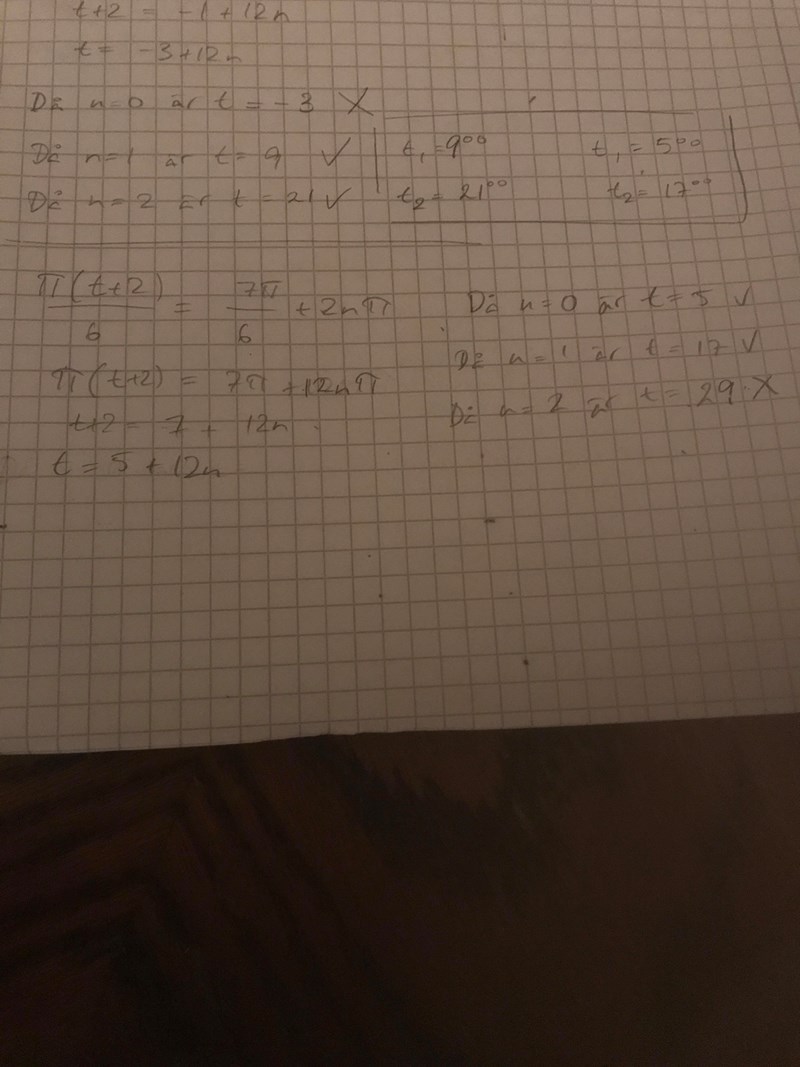 t+2 = -1 + 12n
t = -3+12n
Då n=0 är t = -3 X
Då n=1 är t = 9 ✓
Då n=2 är t = 21 ✓
t₁ = 9⁰⁰ t₁ = 5⁰⁰
t₂ = 21⁰⁰ t₂ = 17⁰⁰
π(t+2)/6 = 7π/6 + 2nπ
π(t+2) = 7π + 12nπ
t+2 = 7 + 12n
t = 5 + 12n
Då n=0 är t = 5 ✓
Då n=1 är t = 17 ✓
Då n=2 är t = 29 X